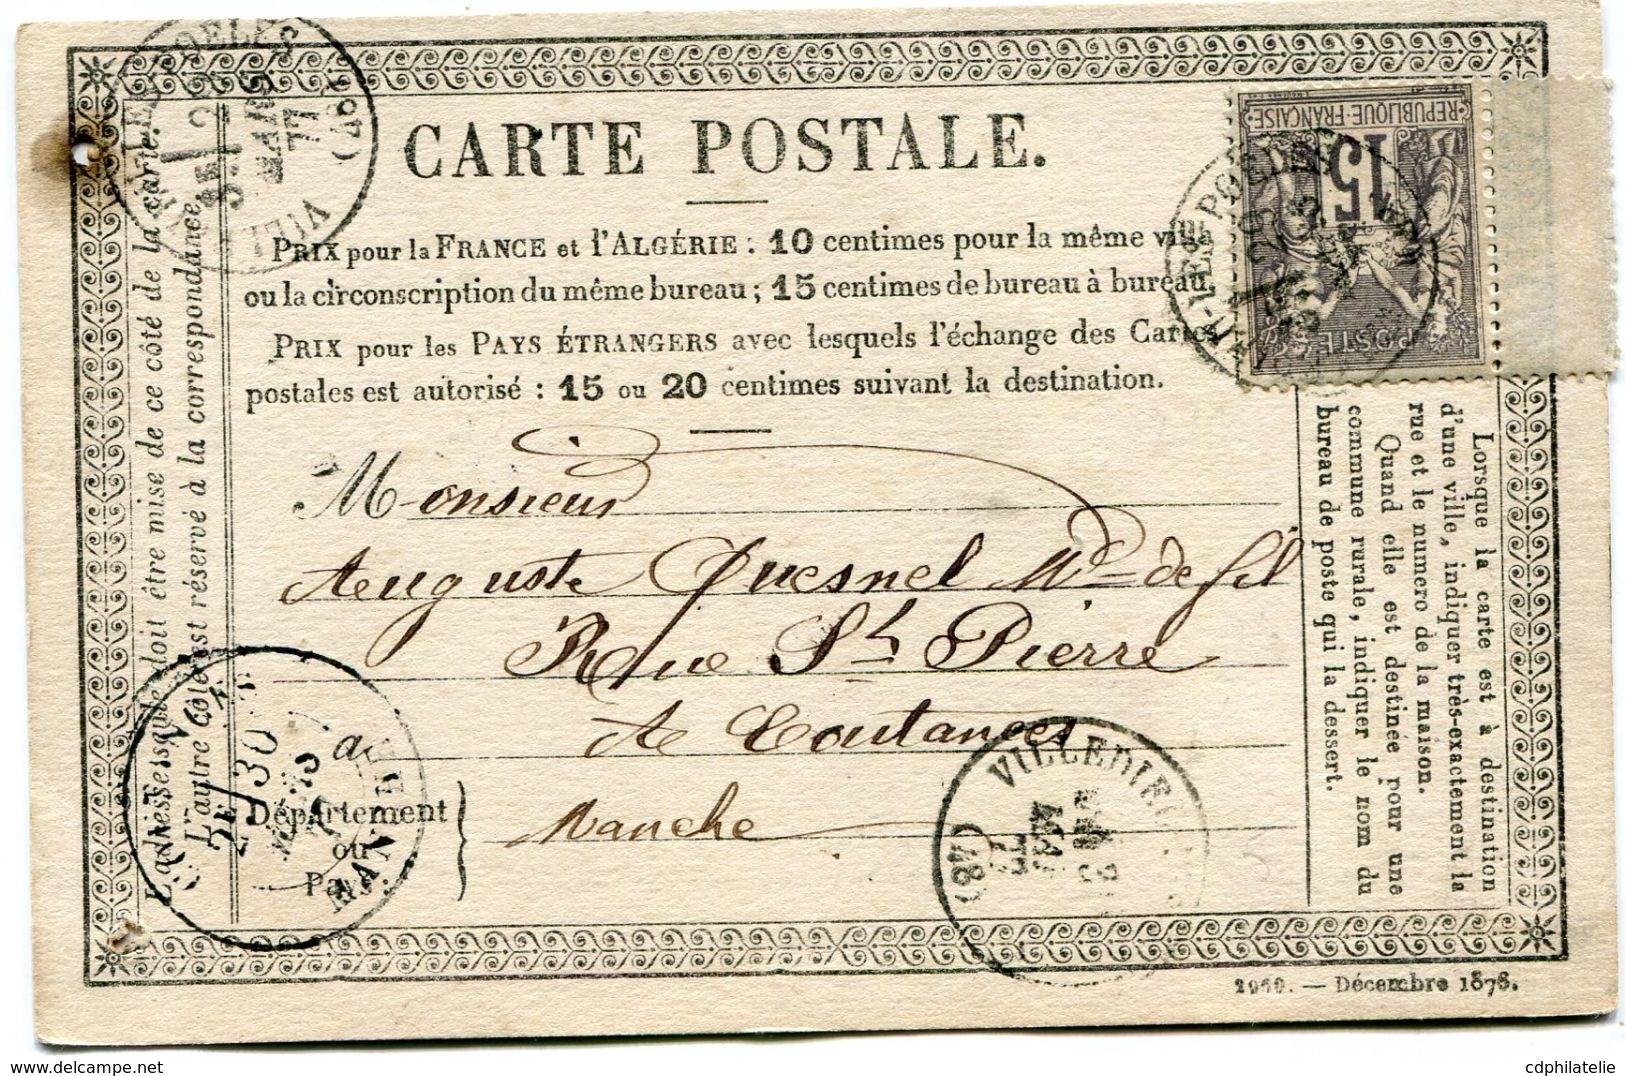 CARTE POSTALE.
PRIX pour la FRANCE et l'ALGÉRIE : 10 centimes pour la même ville
ou la circonscription du même bureau ; 15 centimes de bureau à bureau.
PRIX pour les PAYS ÉTRANGERS avec lesquels l'échange des Cartes
postales est autorisé : 15 ou 20 centimes suivant la destination.
Monsieur
Auguste Quesnel Md de fil
Rue St Pierre
A Coutances
Manche
à
Département
ou
Pays :
L'adresse seule doit être mise de ce côté de la carte.
L'autre côté est réservé à la correspondance.
Lorsque la carte est à destination
d'une ville, indiquer très-exactement la
rue et le numéro de la maison.
Quand elle est destinée pour une
commune rurale, indiquer le nom du
bureau de poste qui la dessert.
REPUBLIQUE·FRANÇAISE
15
POSTE
MARS
77
(48)
2E / 30
MANCHE
VILLEDIEU
(48)
2960. — Décembre 1876.
cdphilatelie